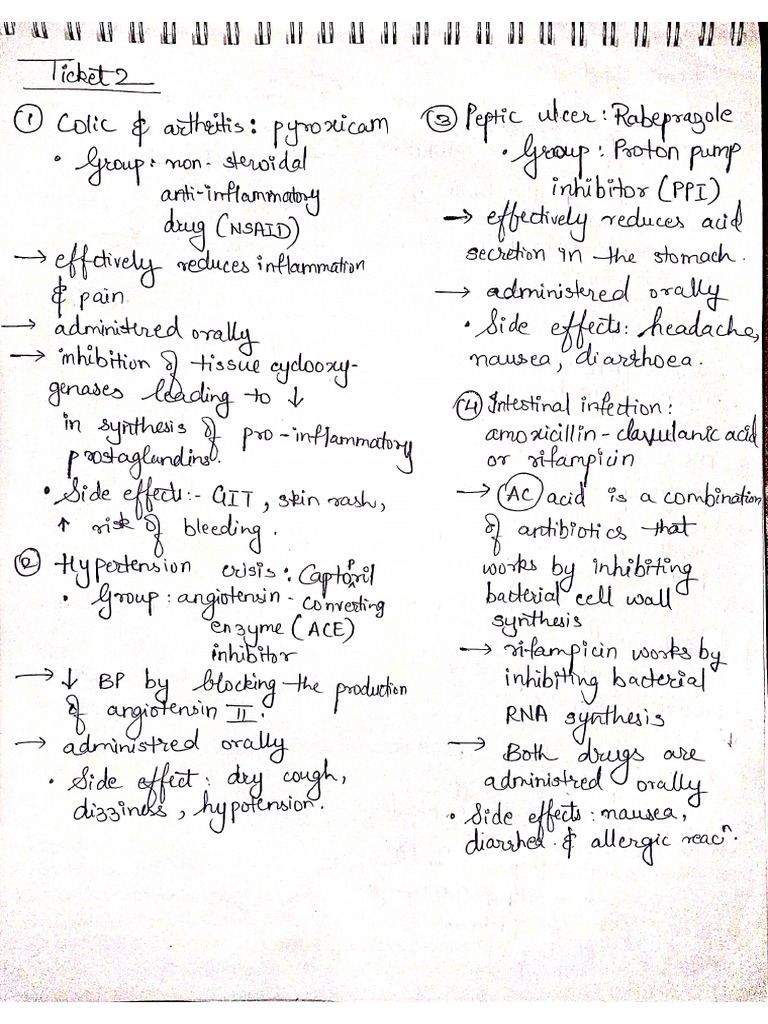 Ticket 2
① Colic & arthritis: pyroxicam
• Group: non-steroidal
anti-inflammatory
drug (NSAID)
→ effctively reduces inflammation
& pain
→ administered orally
→ inhibition of tissue cyclooxy-
genases leading to ↓
in synthesis of pro-inflammatory
prostaglandins.
• Side effects:- GIT, skin rash,
↑ risk of bleeding.
② Hypertension crisis: Captopril
• Group: angiotensin-converting
enzyme (ACE)
inhibitor
→ ↓ BP by blocking the production
of angiotensin II.
→ administred orally
• Side effect: dry cough,
dizziness, hypotension.
③ Peptic ulcer: Rabeprazole
• Group: Proton pump
inhibitor (PPI)
→ effectively reduces acid
secretion in the stomach.
→ administered orally
• Side effects: headache,
nausea, diarrhoea.
④ Intestinal infection:
amoxicillin-clavulanic acid
or rifampicin
→ AC acid is a combination
of antibiotics that
works by inhibiting
bacterial cell wall
synthesis
→ rifampicin works by
inhibiting bacterial
RNA synthesis
→ Both drugs are
administred orally
• Side effects: nausea,
diarrhea. & allergic reacⁿ.